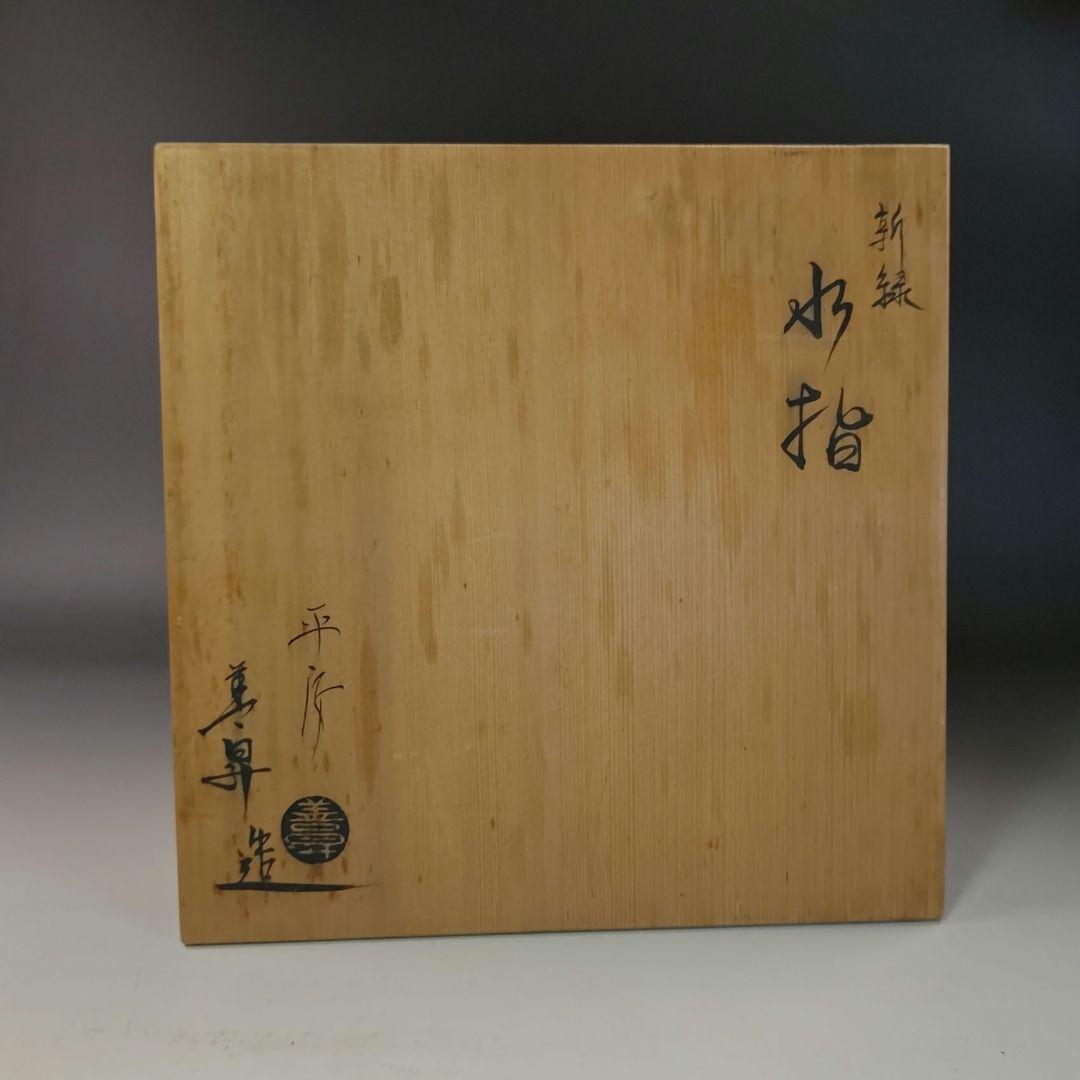 新緑
水指
平安
善昇造
善昇